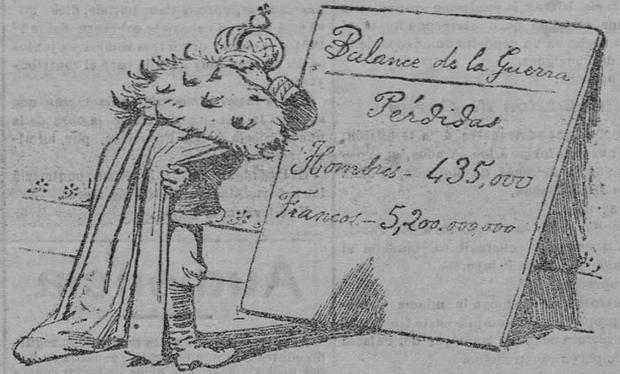 Balance de la Guerra
Pérdidas
Hombres - 435,000
Francos - 5,200.000.000